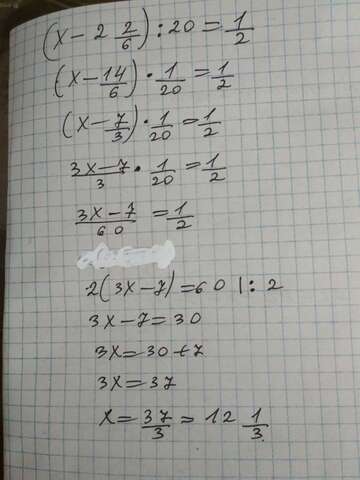 (x - 2 2/6) : 20 = 1/2
(x - 14/6) · 1/20 = 1/2
(x - 7/3) · 1/20 = 1/2
3x-7/3 · 1/20 = 1/2
3x-7/60 = 1/2
2(3x-7) = 60 |: 2
3x-7 = 30
3x = 30+7
3x = 37
x = 37/3 = 12 1/3